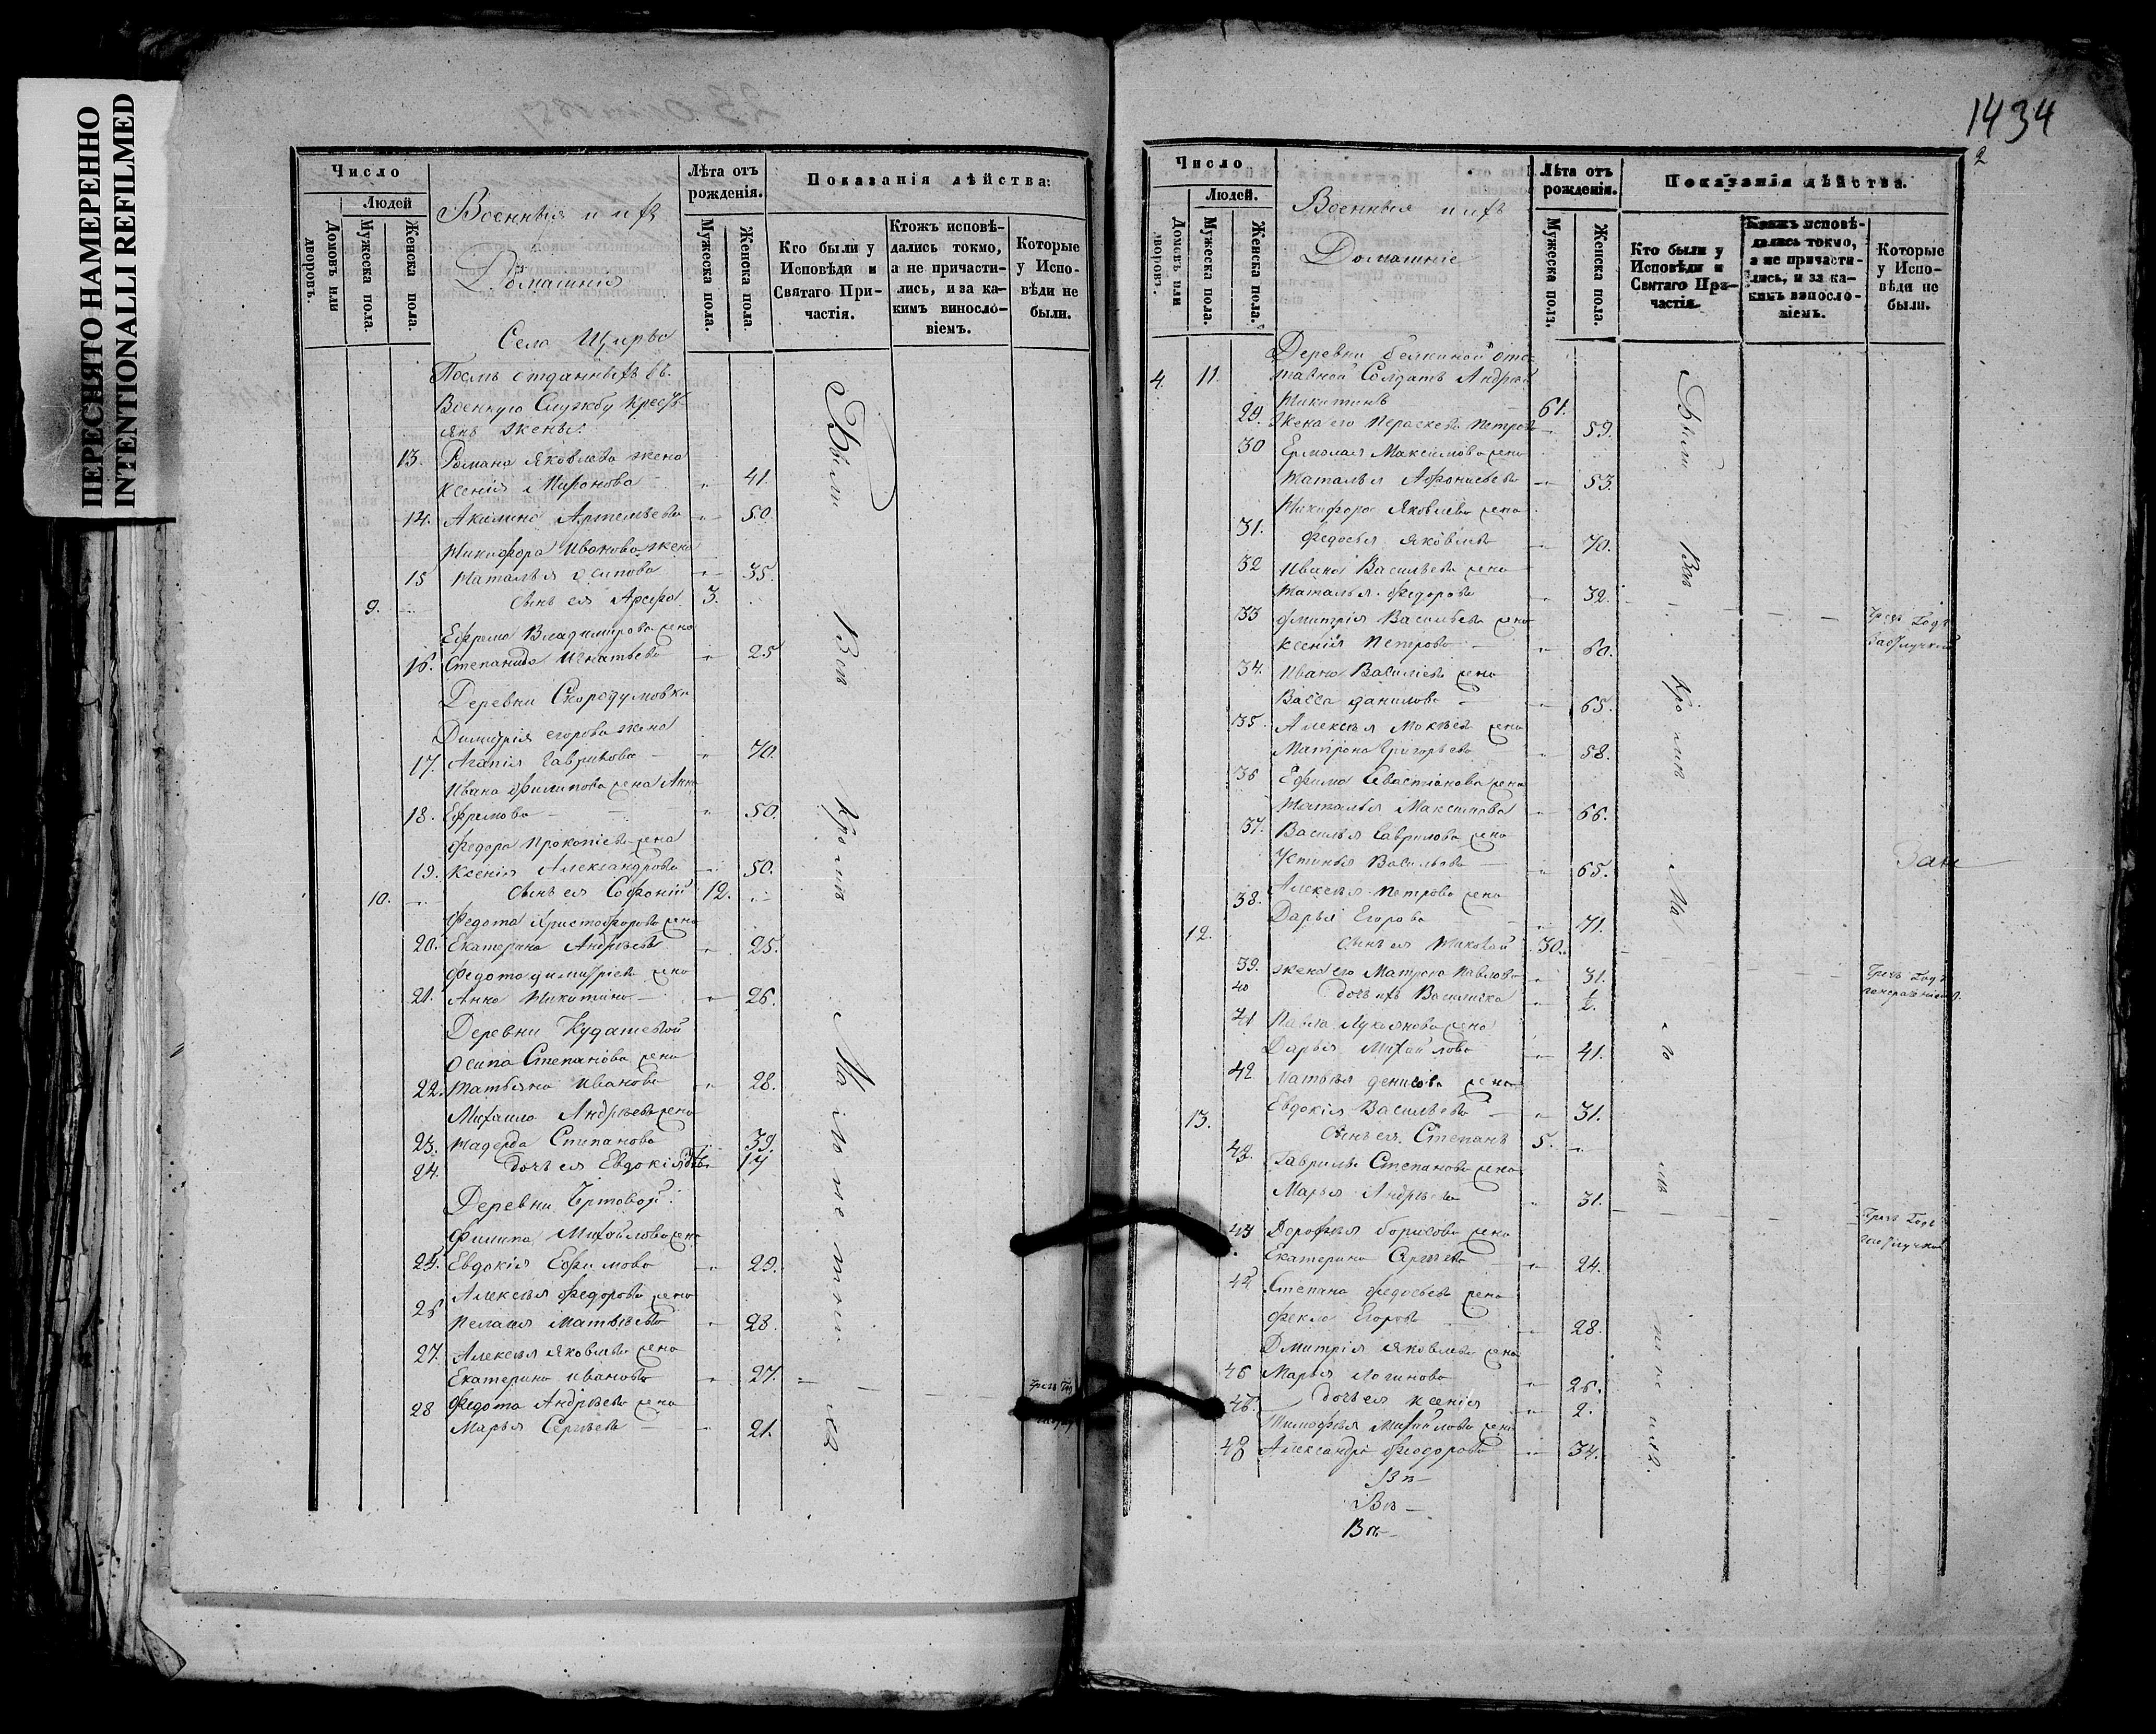 ПЕРЕСНЯТО НАМЕРЕННО
INTENTIONALLI REFILMED
Число
Людей
Домовъ или дворовъ.
Мужеска пола.
Женска пола.
Военныя и ихъ
Домашнія
Лѣта отъ рожденія.
Мужеска пола.
Женска пола.
Показанія дѣйства:
Кто были у Исповѣди и Святаго Причастія.
Ктожъ исповѣдались токмо, а не причастились, и за какимъ винословіемъ.
Которые у Исповѣди не были.
Село
Послѣ отданныхъ въ
Военную Службу Кресть
янъ жены:
13. Романа Яковлева жена
Ксенія Миронова 41.
14. Акилина Артемьева 50.
Никифора Иванова жена
15 Наталья Осипова 35.
9. сынъ ея 3.
Ефрема Владимирова жена
16. Степанида Игнатьева 25
Деревни Скородумовки
Димитрія Егорова жена
17. Агапія Гаврилова 70.
Ивана Филипова жена Анна
18. Ефремова 50.
Федора Прокопіева жена
19. Ксенія Александрова 50.
10. сынъ ея Софоній 12.
Федота Христофорова жена
20. Екатерина Андрѣева 25.
Федота Димитріева жена
21. Анна Никитина 26.
Деревни Кудашевой
Осипа Степанова жена
22. Татьяна Иванова 28.
Михаила Андрѣева жена
23. Надежда Степанова 39.
24. дочь ея Евдокія 14
Деревни
Филипа Михайлова жена
24. Евдокія Ефимова 29.
Алексѣя Федорова жена
26 Пелагея Матвѣева 28.
27. Алексѣя Яковлева жена
Екатерина Иванова 27.
28 Федота Андрѣева жена
Марья Сергѣева 21.
Были Всѣ Кромѣ
1434
2
Число
Людей.
Домовъ или дворовъ.
Мужеска пола.
Женска пола.
Военныя и ихъ
Домашніе
Лѣта отъ рожденія.
Мужеска пола.
Женска пола.
Показанія дѣйства.
Кто были у Исповѣди и Святаго Причастія.
Ктожъ исповѣдались токмо, а не причастились, и за какимъ винословіемъ.
Которые у Исповѣди не были.
Деревни Белкиной отс
4. 11. тавной Солдатъ Андрей
Никитинъ 61.
29. Жена его Параскева Петрова 59.
30 Ермолая Максимова жена
Наталья Афонасьева 53.
Никифора Яковлева жена
31. Федосья Яковлева 70.
32 Ивана Васильева жена
Наталья Федорова 32.
33 Дмитрія Васильева жена
Ксенія Петрова 60.
34. Ивана Васильева жена
Васса Данилова 65.
35 Алексѣя Мокѣева жена
Матрона Григорьева 58.
36 Ефима Севастіанова жена
Наталья Максимова 66.
37. Василья Гаврилова жена
Устинья Васильева 65.
38. Алексѣя Петрова жена
Дарья Егорова 71.
12. сынъ ея Николай 30.
39. жена его Матрона Павлова 31.
40 дочь ихъ Василиса 1/2.
41 Павла Лукьянова жена
Дарья Михайлова 41.
42 Матвѣя Денисова жена
Евдокія Васильева 31.
13. сынъ ея Степанъ 5.
43. Гаврилы Степанова жена
Марья Андрѣева 31.
43 Дорофѣя Борисова жена
Екатерина Сергѣева 24.
Степана Федосѣева жена
Фекла Егорова 28.
Дмитрія Яковлева жена
46 Марья Логинова 26.
46. дочь ея Ксенія 2.
Тимофѣя Михайлова жена
48 Александра Феодорова 34.
Въ
Въ
Въ
Были Всѣ Кромѣ
Чрезъ Годъ
Чрезъ Годъ
Чрезъ Годъ